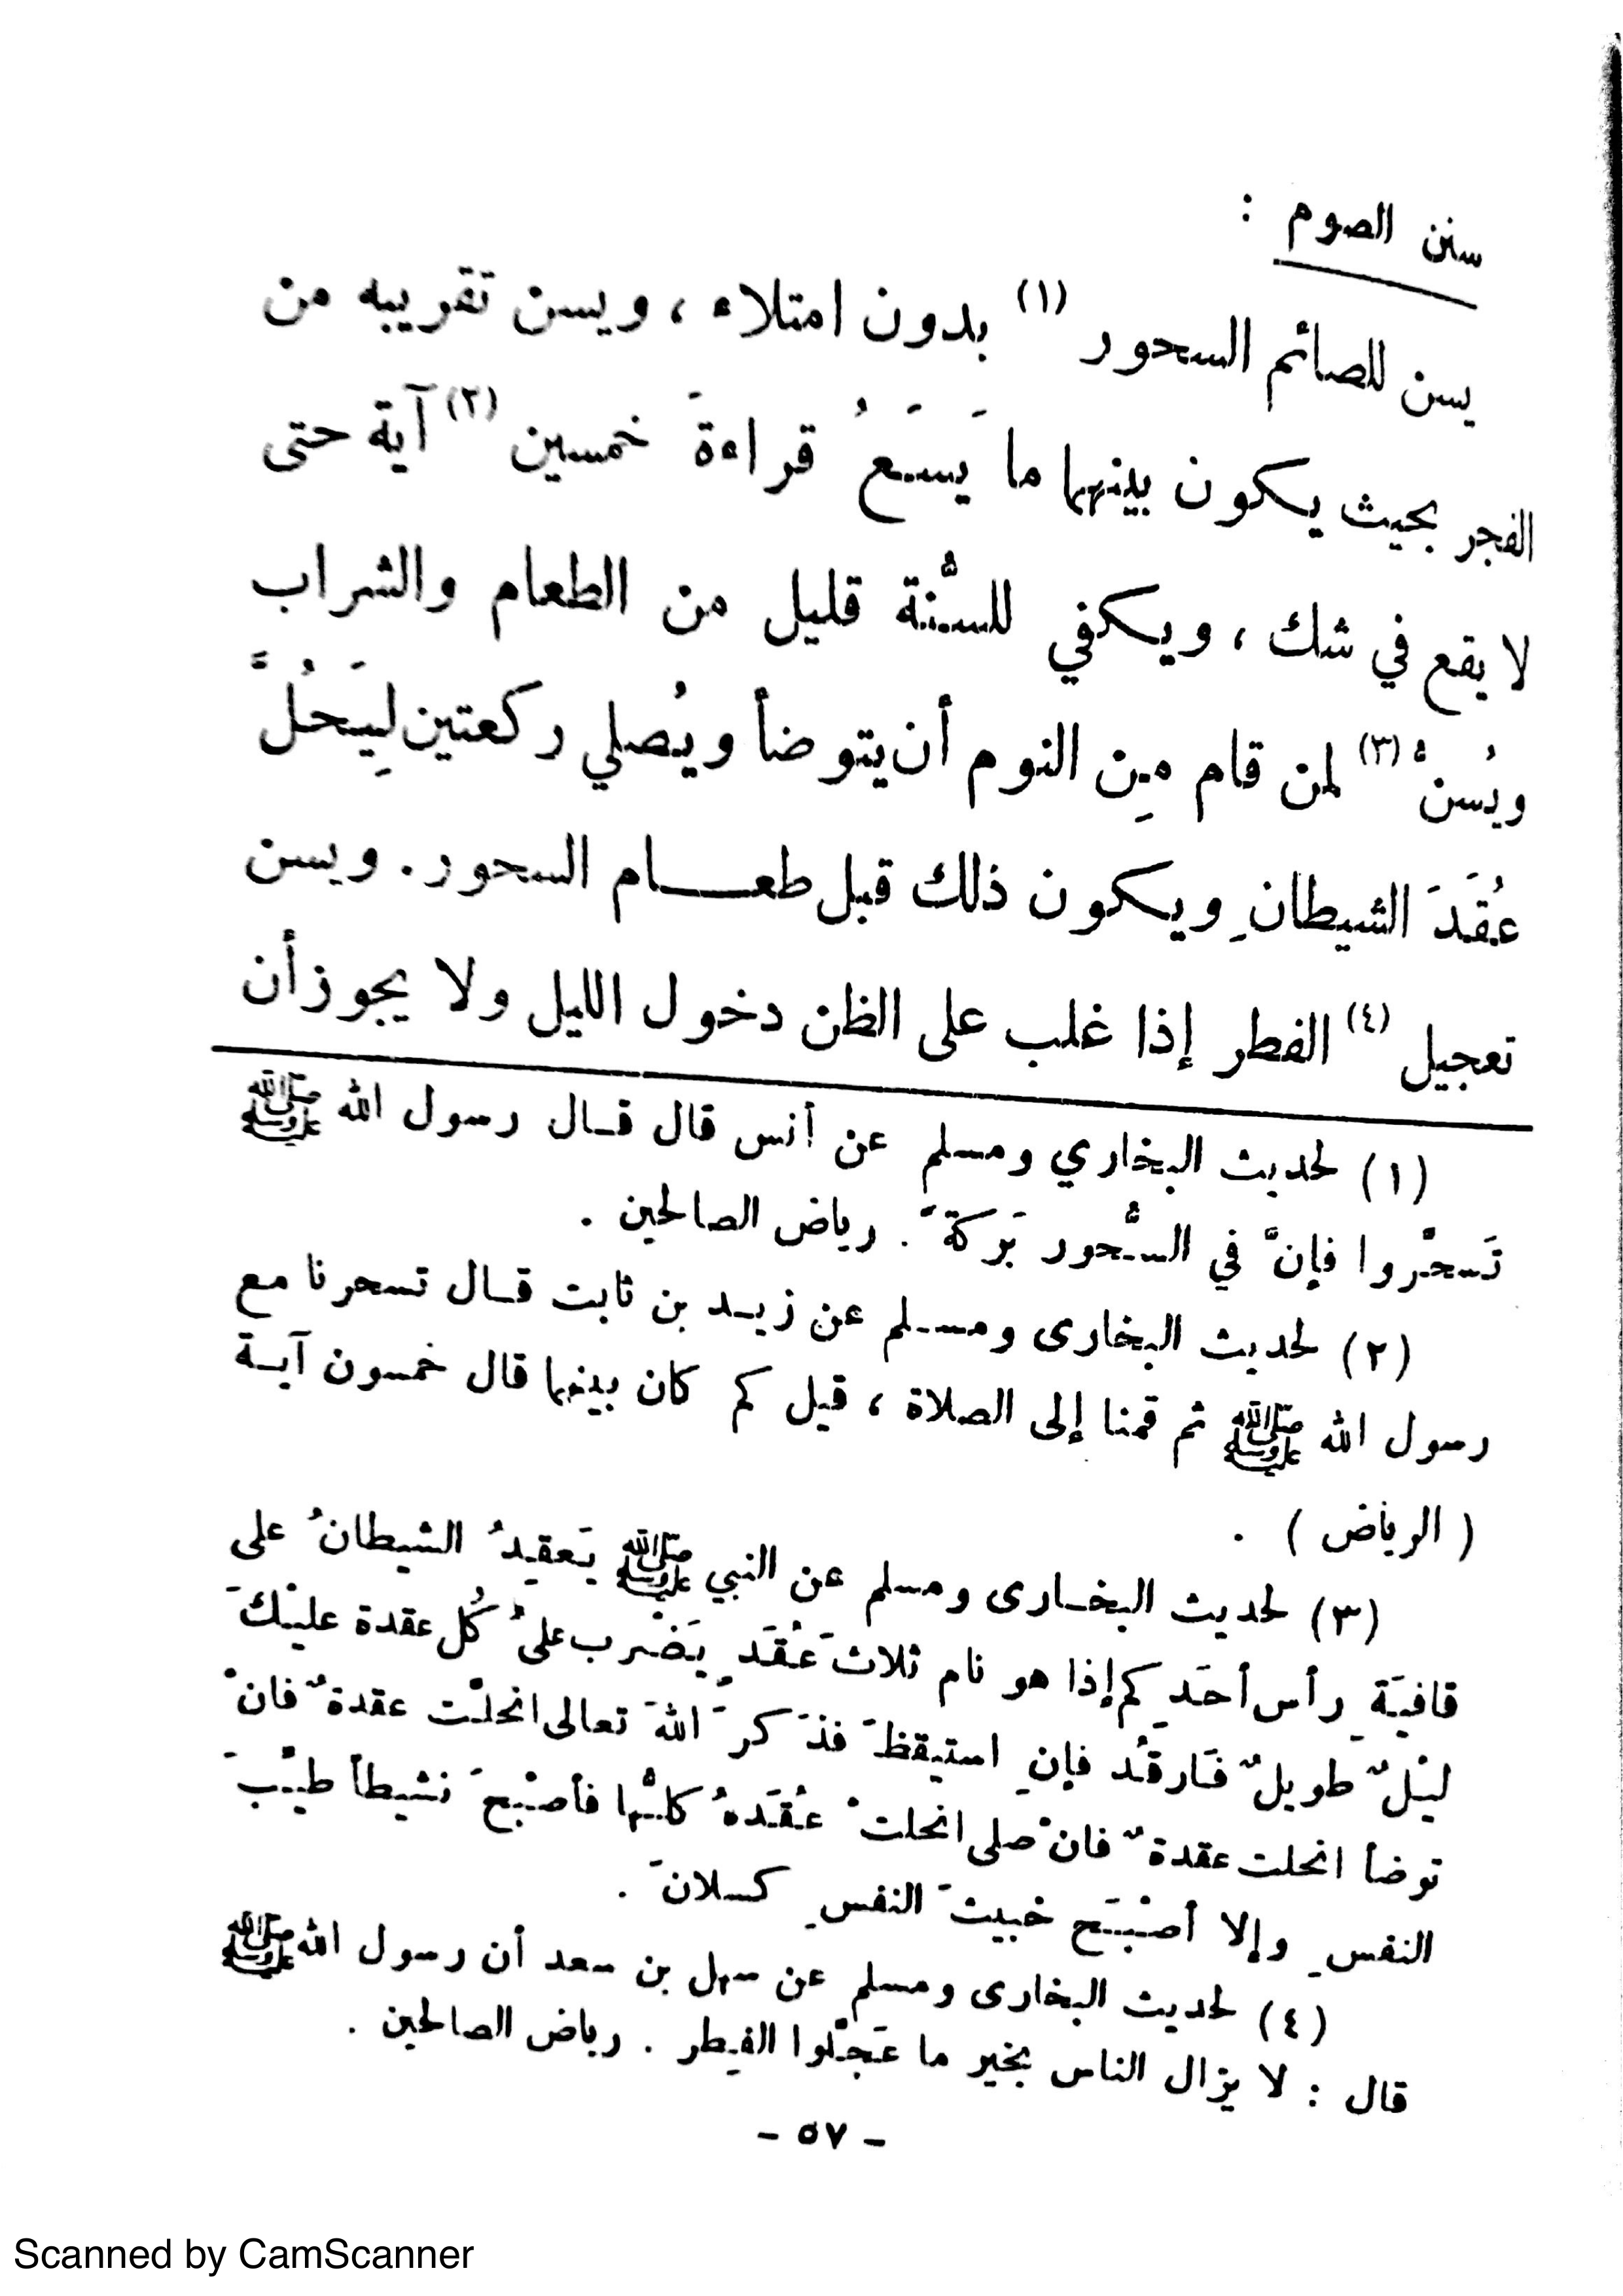 سنن الصوم :
يسن للصائم السحور (١) بدون امتلاء ، ويسن تقريبه من
الفجر بحيث يكون بينهما ما يَسَعُ قراءةَ خمسين (٢) آية حتى
لا يقع في شك ، ويكفي للسُّنة قليل من الطعام والشراب
ويُسنُّ (٣) لمن قام مِن النوم أن يتوضأ ويُصلي ركعتين لِيَحُلَّ
عُقَدَ الشيطانِ ويكون ذلك قبل طعـــام السحور . ويسن
تعجيل (٤) الفطر إذا غلب على الظن دخول الليل ولا يجوز أن
(١) لحديث البخاري ومسلم عن أنس قال قـال رسول الله ﷺ
تَسحَّروا فإنَّ في السُّحور بَركةً . رياض الصالحين .
(٢) لحديث البخارى ومسـلم عن زيـد بن ثابت قـال تسحرنا مع
رسول الله ﷺ ثم قمنا إلى الصلاة ، قيل كم كان بينهما قال خمسون آيـة
( الرياض ) .
(٣) لحديث البخـارى ومسلم عن النبي ﷺ يَعقِدُ الشيطانُ على
قافيَةِ رأس أحَدِكم إذا هو نام ثلاثَ عُقَدٍ يَضْرب على كُل عقدة عليْكَ
ليْلٌ طويلٌ فَارقُد فإنِ استيقظَ فذَكرَ اللهَ تعالى انحلّت عقدةٌ فانْ
توضأ انحلت عقدةٌ فانْ صلى انحلتْ عُقَدهُ كلُّها فأصْبحَ نشيطاً طيّبَ
النفسِ وإلا أصْبَح خبيثَ النفسِ كسلانَ .
(٤) لحديث البخارى ومسلم عن سهل بن سعد أن رسول الله ﷺ
قال : لا يزال الناس بخير ما عَجّلوا الفِطر . رياض الصالحين .
- ٥٧ -
Scanned by CamScanner